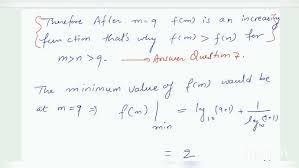 Therefore After m=9 f(m) is an increasing
function that's why f(m) > f(n) for
m>n>9. → Answer Question 7.
The minimum value of f(m) would be
at m=9 ⇒ f(m)|min = log₁₀(9+1) + 1/log₁₀(9+1)
= 2